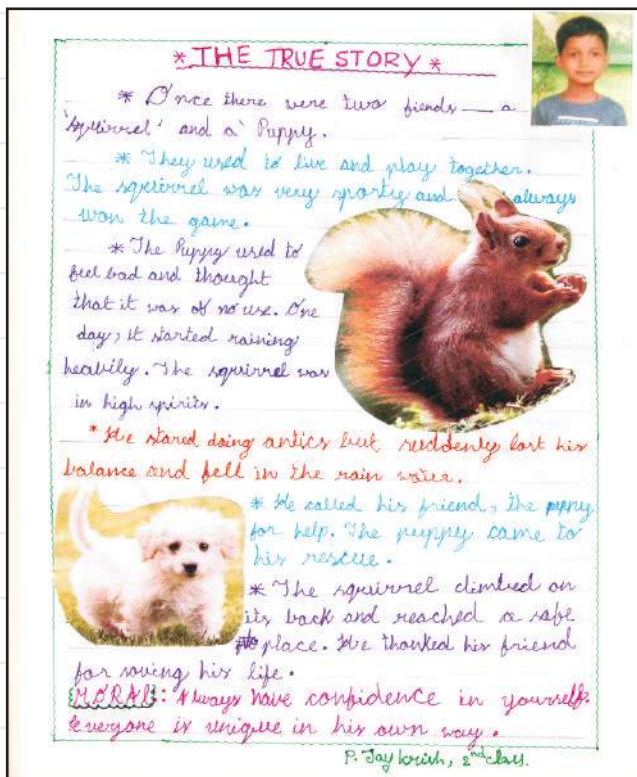 * THE TRUE STORY *
* Once there were two fiends — a
'squirrel' and a' Puppy.
* They used to live and play together.
The squirrel was very sporty and always
won the game.
* The Puppy used to
feel bad and thought
that it was of no use. One
day, it started raining
heabily. The squirrel was
in high spirits.
* He stared doing antics but suddenly lost his
balance and fell in the rain water.
* He called his friend, the puppy
for help. The puppy came to
his rescue.
* The squirrel climbed on
its back and reached a safe
place. He thanked his friend
for saving his life.
MORAL: Always have confidence in yourself.
Everyone is unique in his own way.
P. Jay krish, 2nd class.